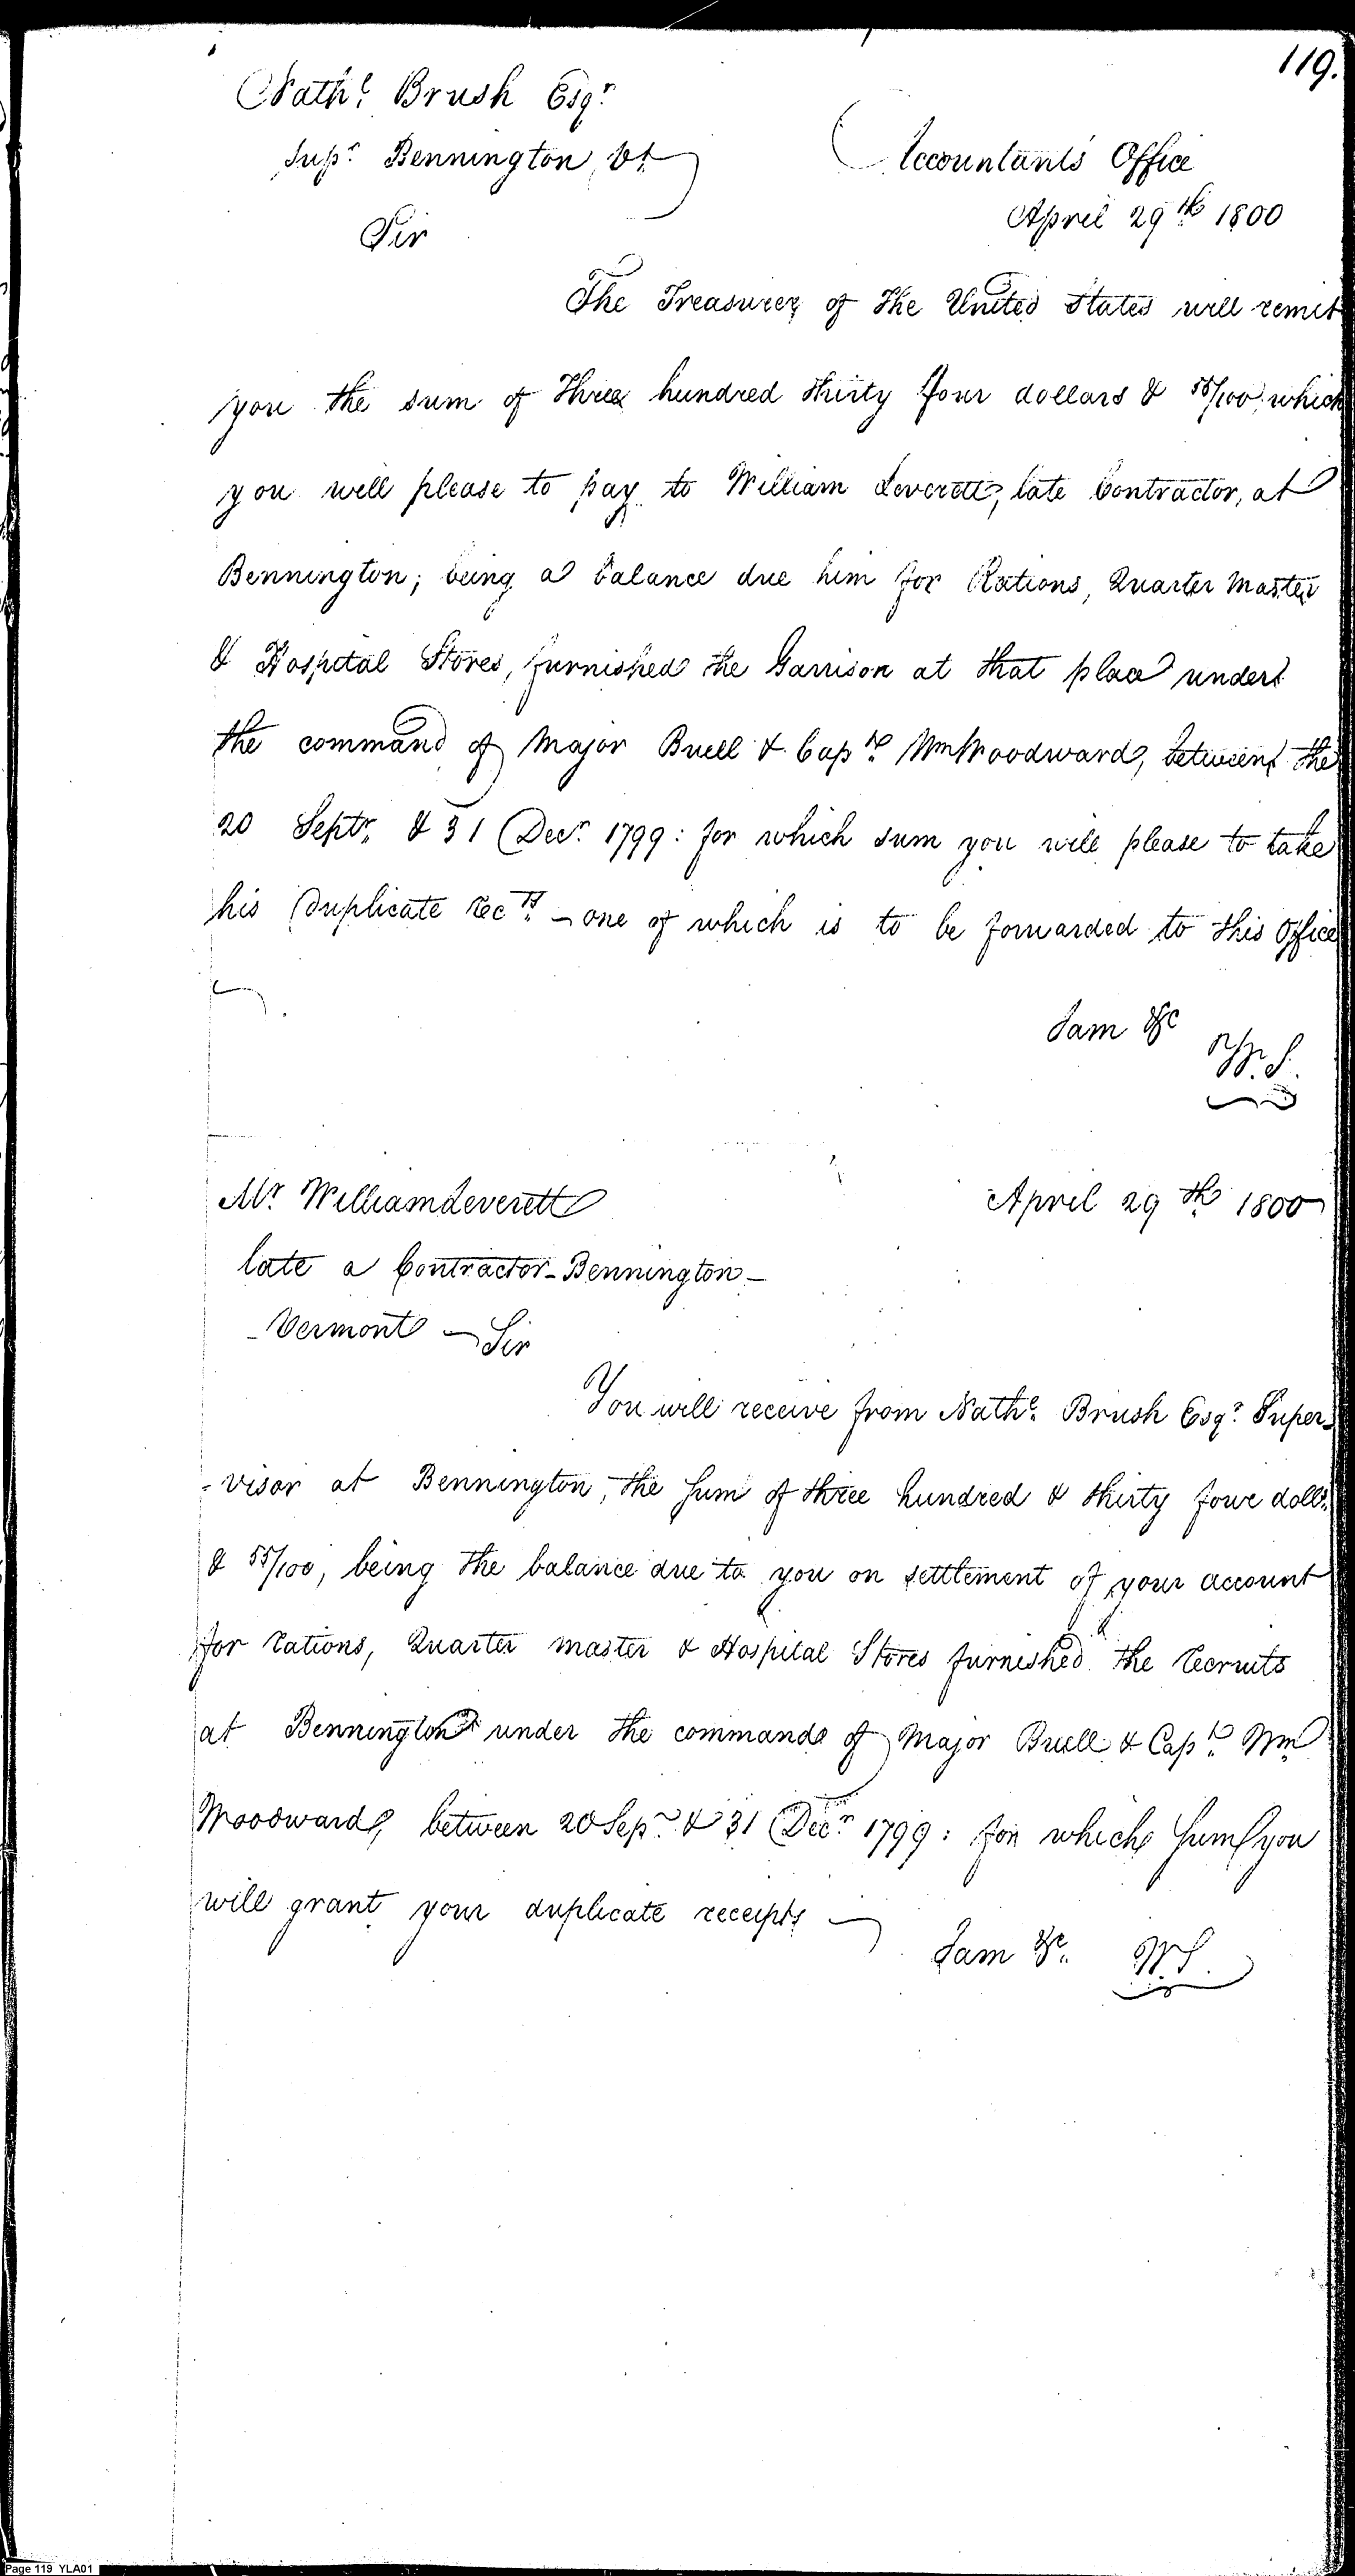 119.
Nathl. Brush Esqr.
Supr. Bennington, Vt.
Accountants Office
April 29th 1800
Sir
The Treasurer of the United States will remit
you the sum of Three hundred thirty four dollars & 55/100 which
you will please to pay to William Leverett, late Contractor, at
Bennington; being a balance due him for Rations, Quarter Master
& Hospital Stores, furnished the Garrison at that place under
the command of Major Buell & Capt. Wm Woodward, between the
20 Septr. & 31 Decr. 1799: for which sum you will please to take
his Duplicate recTs. – one of which is to be forwarded to this office
I am &c
W.S.
Mr. William Leverett
April 29th 1800
late a Contractor - Bennington –
- Vermont – Sir
You will receive from Nathl. Brush Esqr. Super-
-visor at Bennington, the sum of three hundred & thirty four dolls.
& 55/100, being the balance due to you on settlement of your account
for rations, Quarter master & Hospital Stores furnished the recruits
at Bennington under the command of Major Buell & Capt. Wm
Woodward, between 20 Sepr. & 31 Decr. 1799: for which sum you
will grant your duplicate receipts –
I am &c. W.S.
Page 119 YLA01